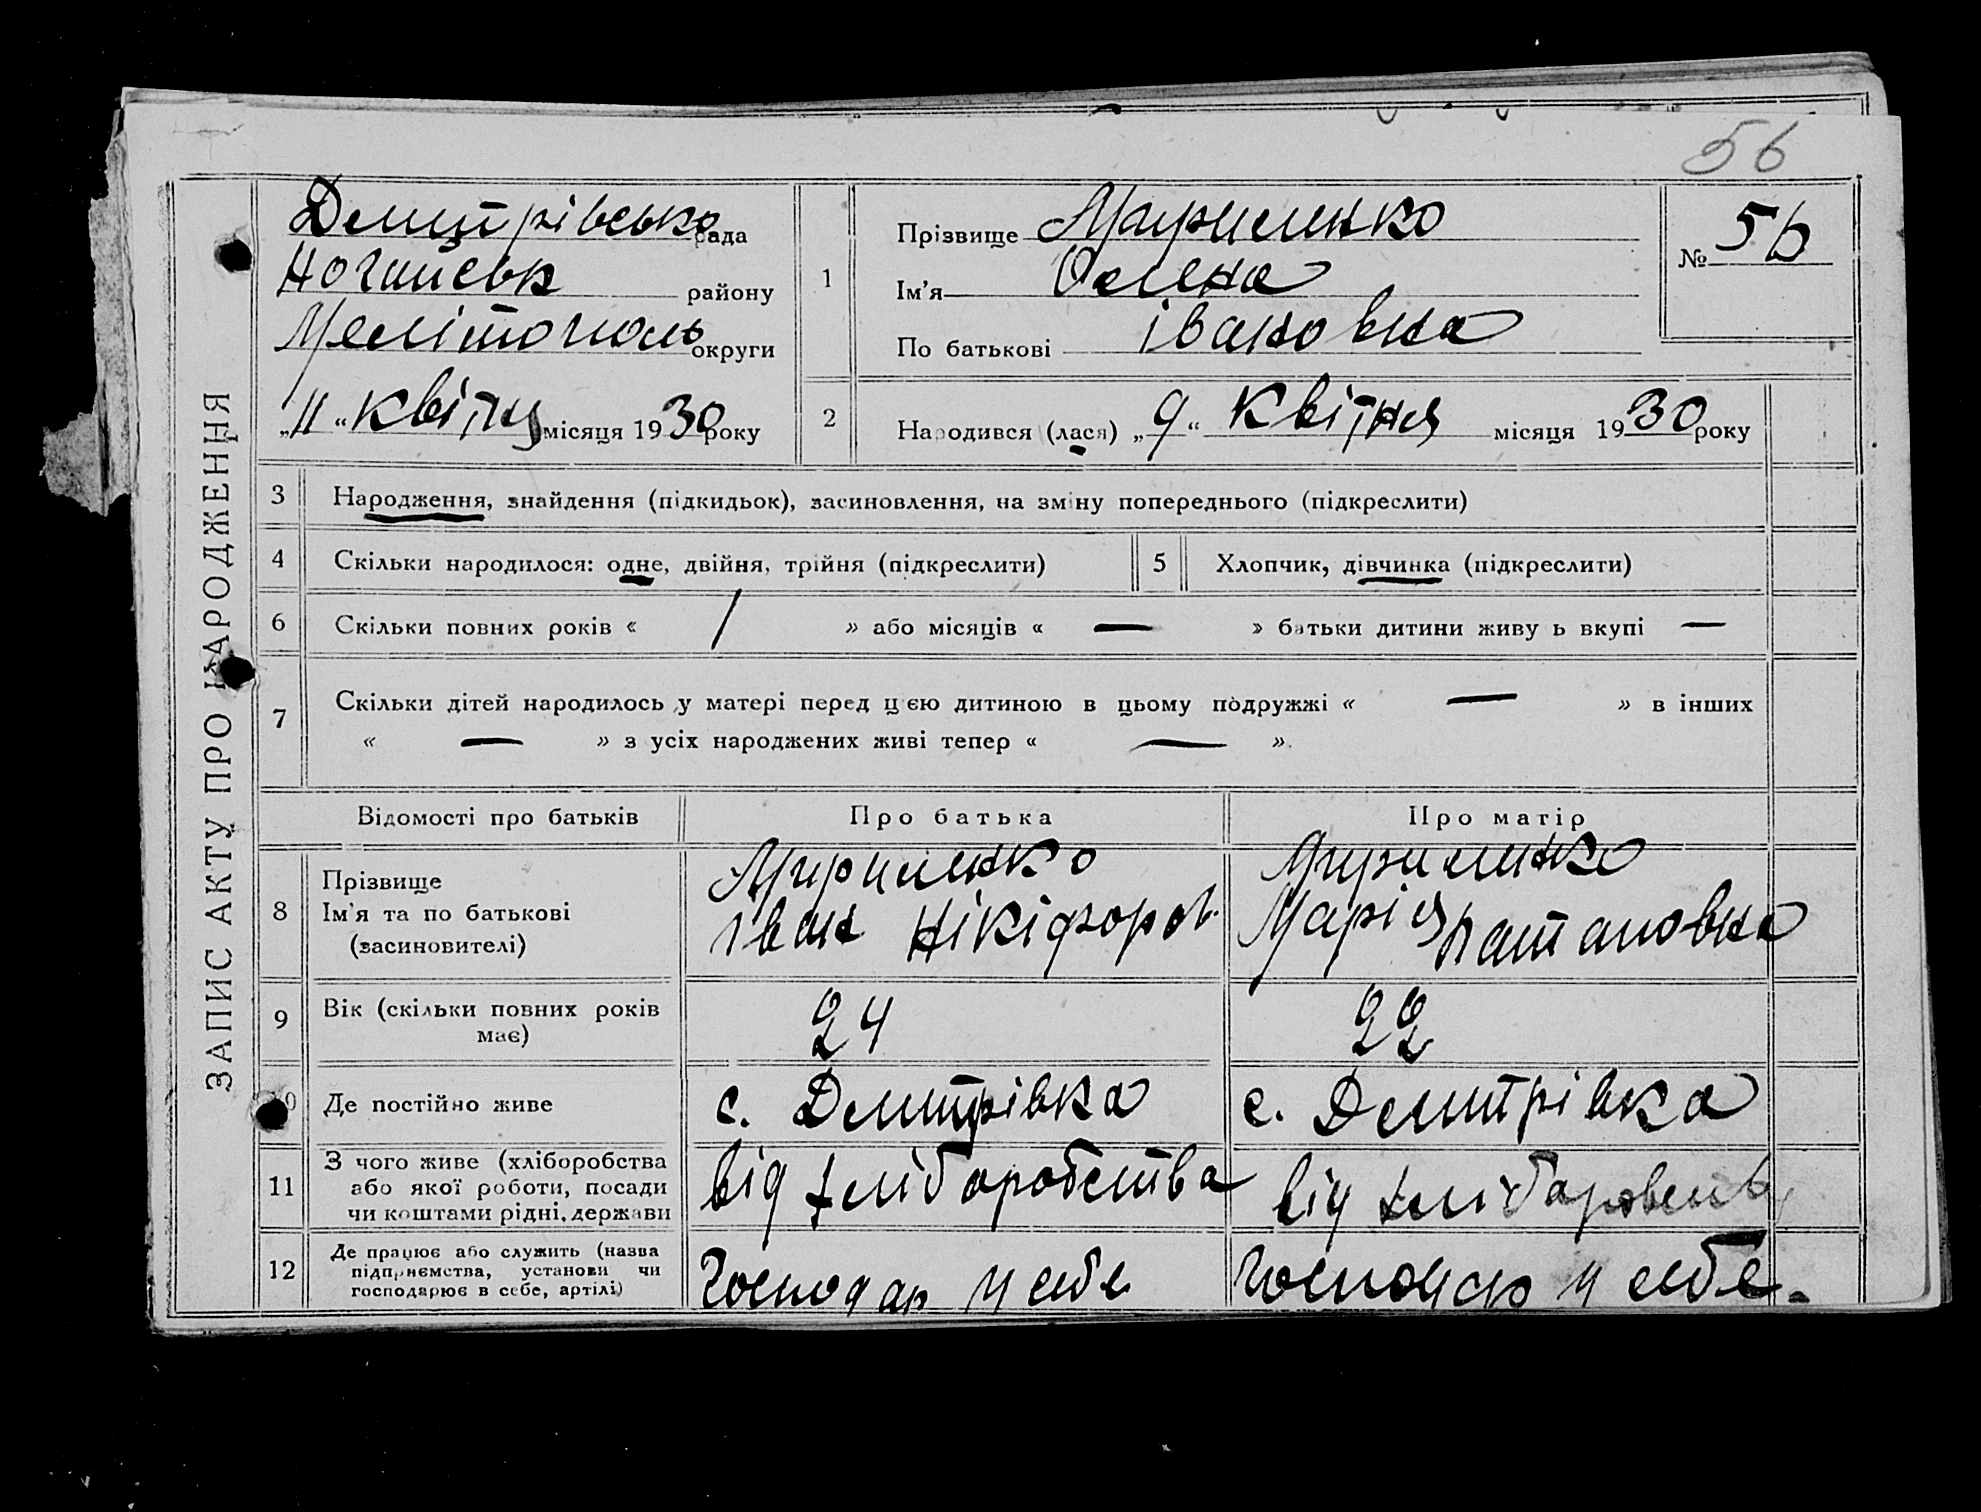 56
ЗАПИС АКТУ ПРО НАРОДЖЕННЯ
Дмитрівська рада
Ногайськ району
Мелітополь округи
„11“ квітня місяця 1930 року
1
Прізвище
Ім’я Олена
По батькові івановна
№ 56
2
Народився (лася) „9“ Квітня місяця 1930 року
3 Народження, знайдення (підкидьок), засиновлення, на зміну попереднього (підкреслити)
4 Скільки народилося: одне, двійня, трійня (підкреслити)
5 Хлопчик, дівчинка (підкреслити)
6 Скільки повних років « / » або місяців « — » батьки дитини живуть вкупі —
7 Скільки дітей народилось у матері перед цією дитиною в цьому подружжі « — » в інших
« — » з усіх народжених живі тепер « — ».
Відомості про батьків Про батька Про матір
8 Прізвище
Ім’я та по батькові
(засиновителі)
іван Нікіфоров.
Марія
9 Вік (скільки повних років
має)
24 22
10 Де постійно живе с. Дмитрівка с. Дмитрівка
11 З чого живе (хліборобства
або якої роботи, посади
чи коштами рідні, держави
від хліборобства
від
12 Де працює або служить (назва
підприємства, установи чи
господарює в себе, артілі)
Господар у себе Господар у себе.